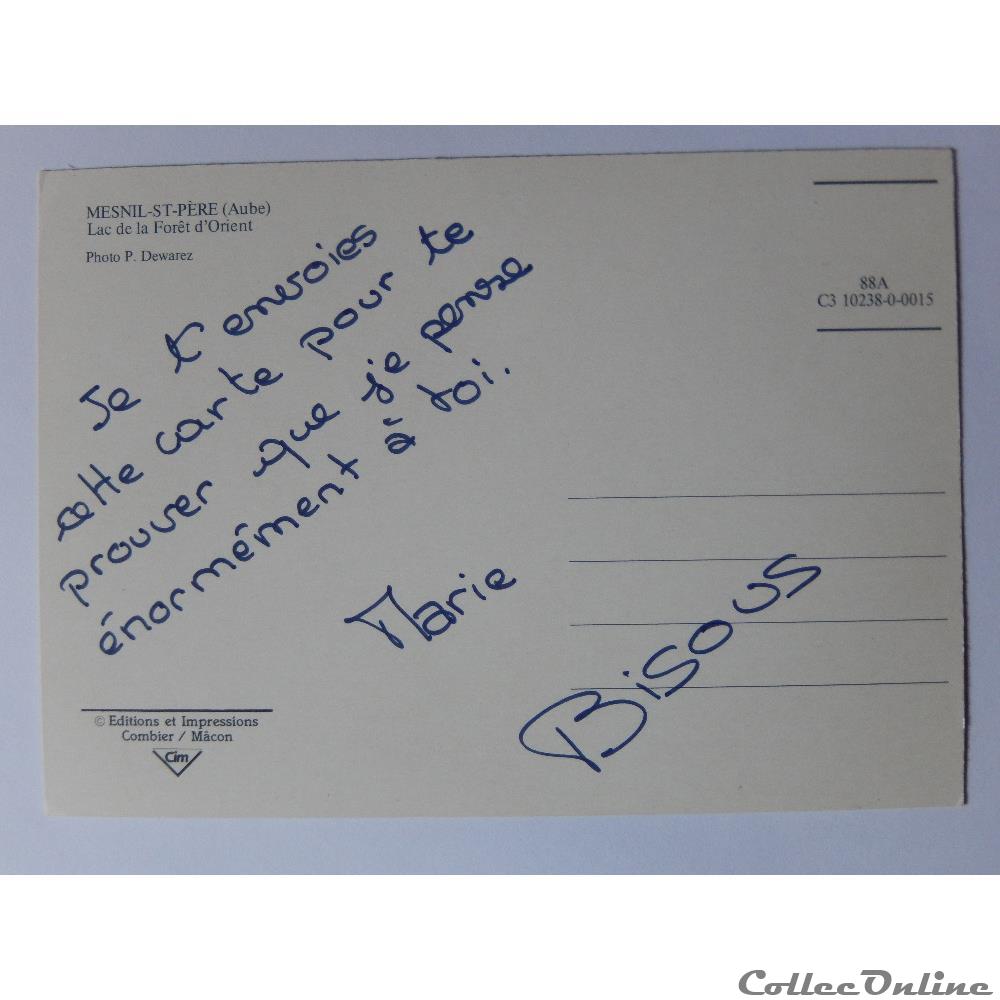 MESNIL-ST-PÈRE (Aube)
Lac de la Forêt d'Orient
Photo P. Dewarez
88A
C3 10238-0-0015
Je t'envoies
cette carte pour te
prouver que je pense
énormément à toi.
Marie
Bisous
© Editions et Impressions
Combier / Mâcon
Cim
CollecOnline